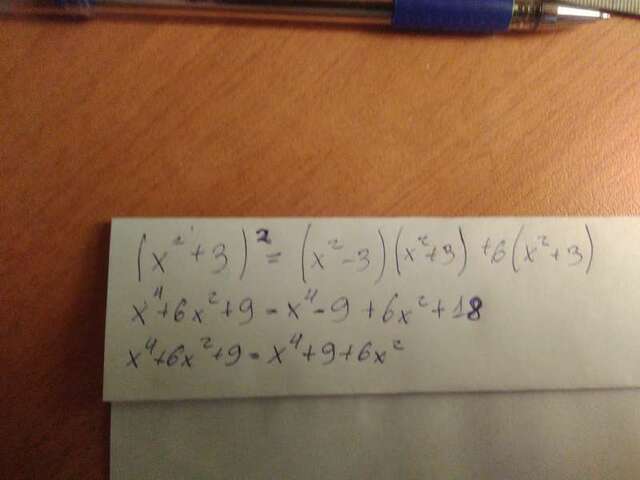 (x²+3)²=(x²-3)(x²+3)+6(x²+3)
x⁴+6x²+9=x⁴-9+6x²+18
x⁴+6x²+9=x⁴+9+6x²